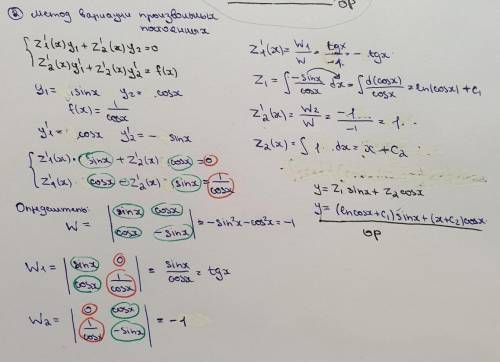 ② метод вариации произвольных
постоянных
{ z₁'(x)y₁ + z₂'(x)y₂ = 0
z₂'(x)y₁' + z₂'(x)y₂' = f(x)
y₁ = sinx   y₂ = cosx
f(x) = 1/cosx
y₁' = cosx   y₂' = - sinx
{ z₁'(x)· sinx + z₂'(x) cosx = 0
z₁'(x) cosx - z₂'(x) sinx = 1/cosx
Определитель:
W = | sinx cosx ; cosx -sinx | = -sin²x - cos²x = -1
W₁ = | sinx 0 ; cosx 1/cosx | = sinx/cosx = tgx
W₂ = | 0 cosx ; 1/cosx -sinx | = -1
ор
z₁'(x) = W₁/W = tgx/-1 = - tgx
z₁ = ∫ -sinx/cosx dx = ∫ d(cosx)/cosx = ln(cosx) + c₁
z₂'(x) = W₂/W = -1/-1 = 1
z₂(x) = ∫ 1 dx = x + c₂
y = z₁ sinx + z₂ cosx
y = (lncosx + c₁) sinx + (x + c₂) cosx
ор